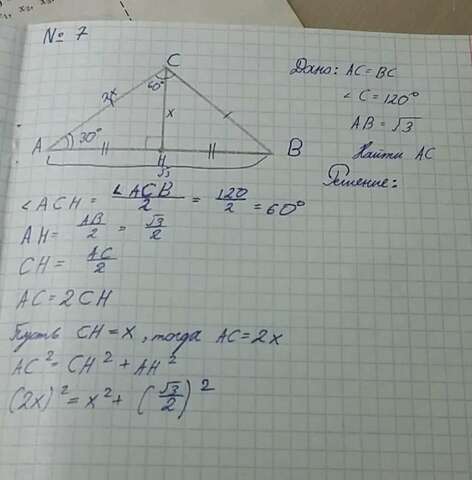 № 7
C
60°
2x
x
A
30°
H
B
√3
Дано: AC=BC
∠C=120°
AB=√3
Найти AC
Решение:
∠ACH = ∠ACB/2 = 120/2 = 60°
AH = AB/2 = √3/2
CH = AC/2
AC=2CH
Пусть CH=x, тогда AC=2x
AC²=CH²+AH²
(2x)²=x²+(√3/2)²